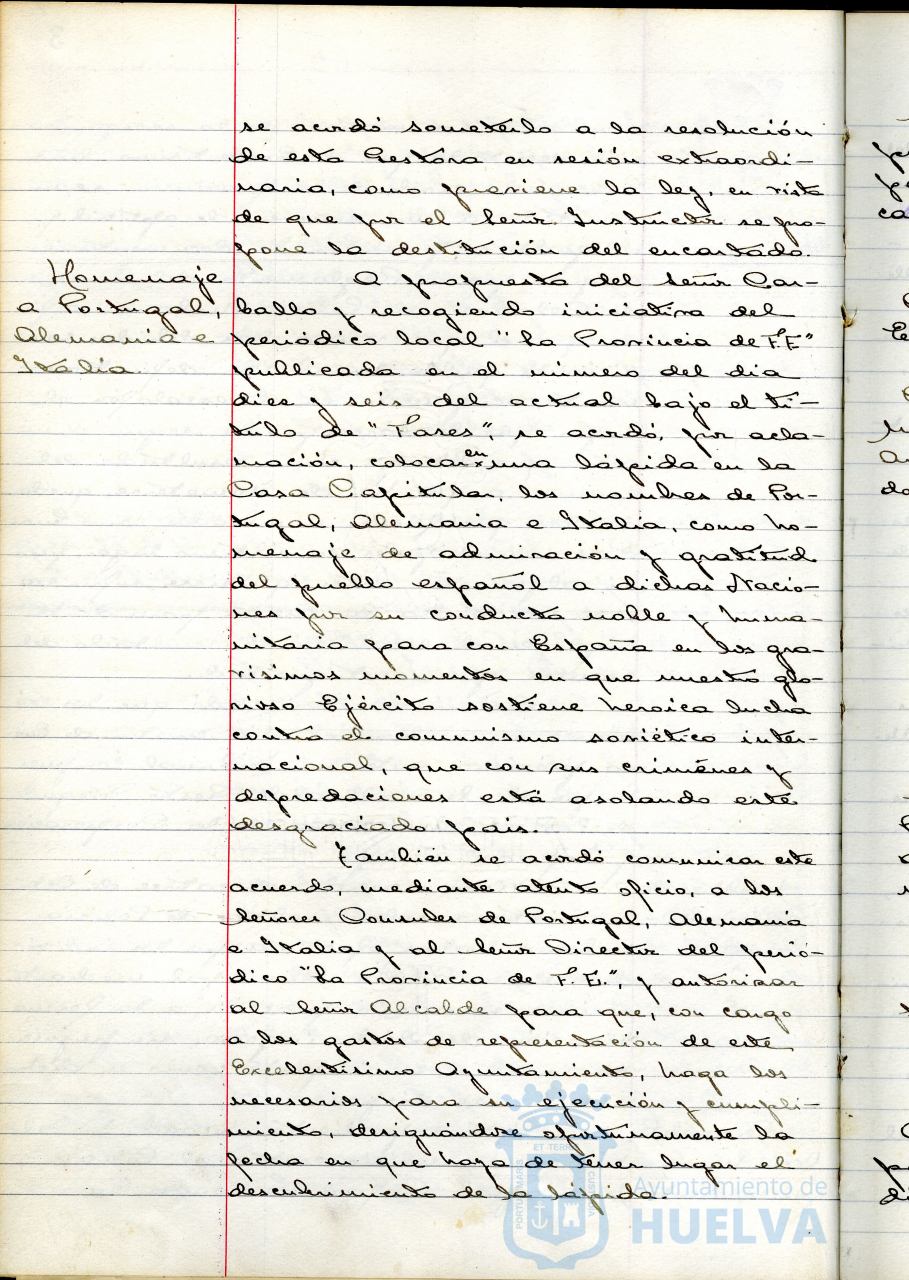 se acordó someterlo a la resolución
de esta Gestora en sesión extraordi-
naria, como previene la ley, en vista
de que por el Señor Instructor se pro-
pone la destitución del encartado.
Homenaje
a Portugal,
Alemania e
Italia.
A propuesta del Señor Car-
ballo y recogiendo iniciativa del
periódico local "La Provincia de F.E"
publicada en el número del dia
diez y seis del actual bajo el tí-
tulo de "Fases", se acordó, por acla-
mación, colocar en una lápida en la
Casa Capitular, los nombres de Por-
tugal, Alemania e Italia, como ho-
menaje de admiración y gratitud
del pueblo español a dichas Nacio-
nes por su conducta noble y huma-
nitaria para con España en los gra-
visimos momentos en que nuestro glo-
rioso Ejército sostiene heroica lucha
contra el comunismo soviético inter-
nacional, que con sus crimenes y
depredaciones está asolando este
desgraciado pais.
También se acordó comunicar este
acuerdo, mediante atento oficio, a los
Señores Consules de Portugal, Alemania
e Italia y al Señor Director del perió-
dico "La Provincia de F.E.", y autorizar
al Señor Alcalde para que, con cargo
a los gastos de representación de este
Excelentísimo Ayuntamiento, haga los
necesarios para su ejecución y cumpli-
miento, designándose oportunamente la
fecha en que haya de tener lugar el
descubrimiento de la lápida.
Ayuntamiento de
HUELVA